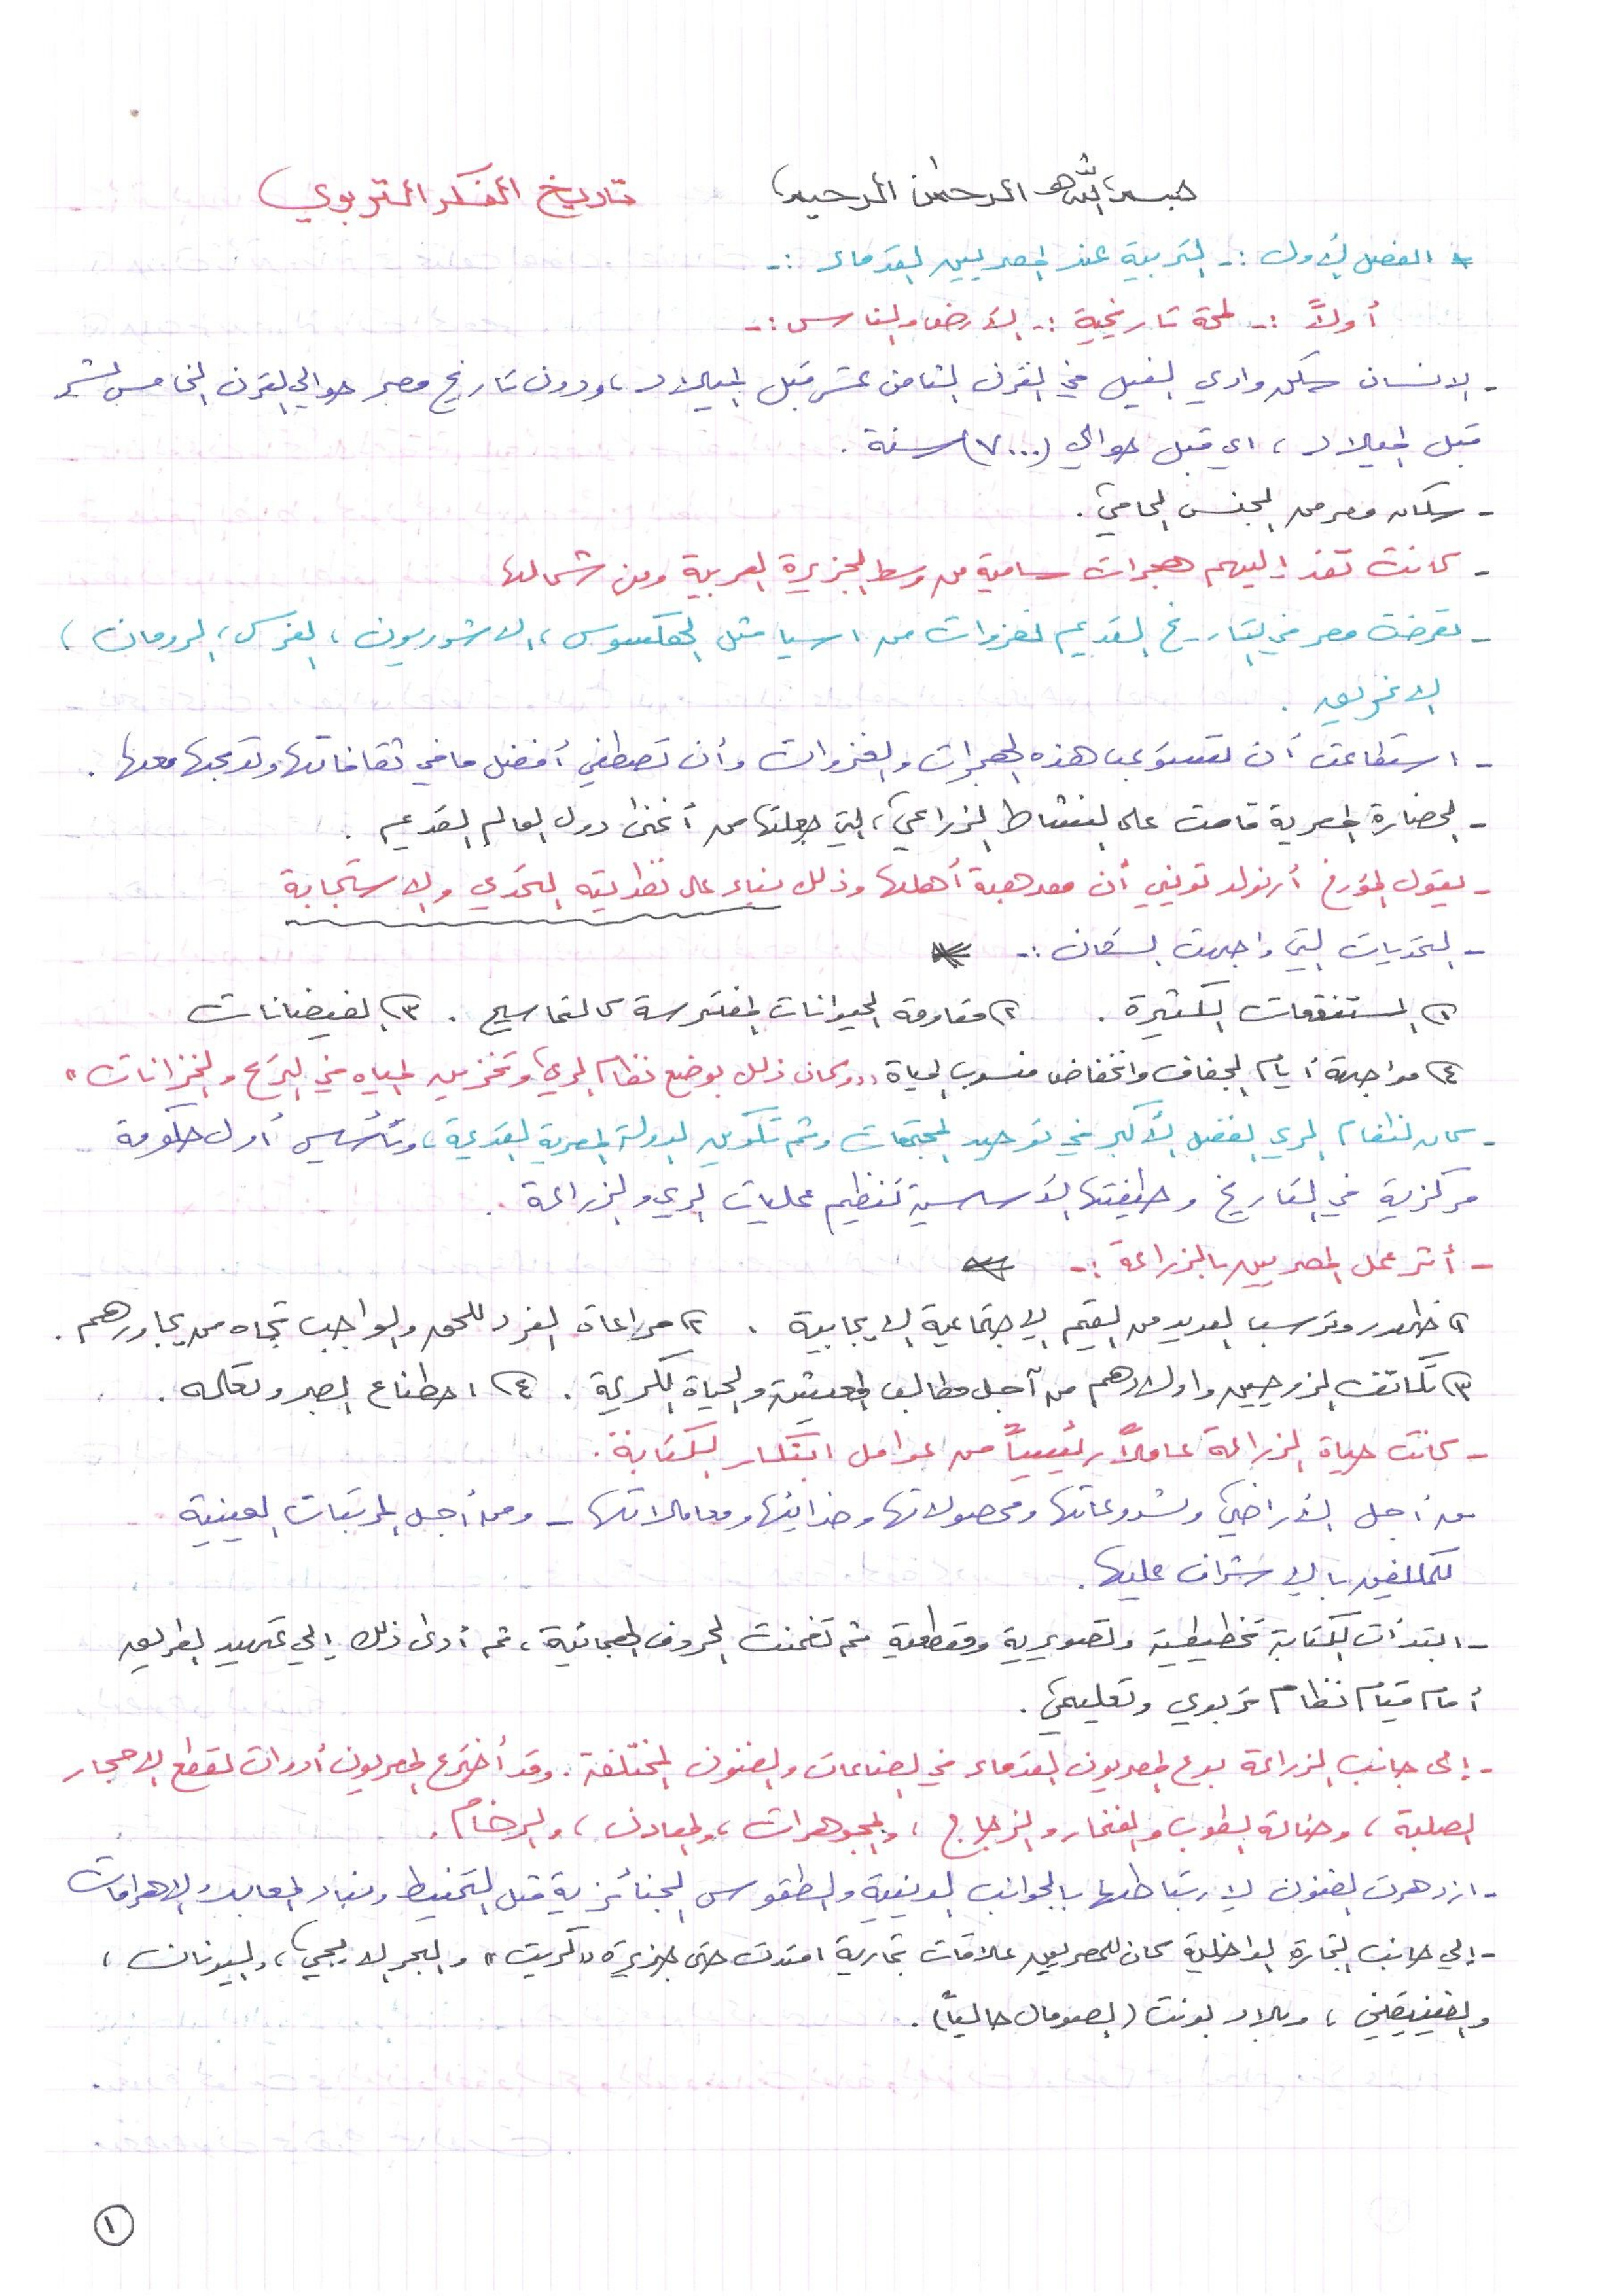 بسم الله الرحمن الرحيم تاريخ الفكر التربوي
* الفصل الأول :- التربية عند المصريين القدماء :-
أولاً :- لمحة تاريخية :- الأرض والناس :-
- الانسان سكن وادي النيل في القرن الثامن عشر قبل الميلاد ، ودون تاريخ مصر حوالي القرن الخامس عشر
قبل الميلاد ، اي قبل حوالي (٧٠٠٠) سنة .
- سكان مصر من الجنس الحامي .
- كانت تفد إليهم هجرات سامية من وسط الجزيرة العربية ومن شمالها
- تعرضت مصر في التاريخ القديم لغزوات من اسيا مثل الهكسوس ، الاشوريون ، الفرس ، الرومان ،
الاغريق .
- استطاعت أن تستوعب هذه الهجرات والغزوات وأن تصطفي أفضل ما في ثقافاتها وتدمجها معها .
- الحضارة المصرية قامت على النشاط الزراعي ، التي جعلتها من أغنى دول العالم القديم .
- يقول المؤرخ أرنولد توينبي أن مصر هبة أهلها وذلك بناء على نظريته التحدي والاستجابة
- التحديات التي واجهت السكان :-
١) المستنقعات الكثيرة . ٢) مقاومة الحيوانات المفترسة كالتماسيح . ٣) الفيضانات
٤) مواجهة أيام الجفاف وانخفاض منسوب المياة "وكان ذلك بوضع نظام الري وتخزين المياه في الترع والخزانات"
- كان لنظام الري الفضل الأكبر في توحيد المجتمعات وثم تكوين الدولة المصرية القديمة ، وتأسيس أول حكومة
مركزية في التاريخ وظيفتها الأساسية تنظيم عمليات الري والزراعة .
- أثر عمل المصريين بالزراعة :-
١) ظهور وترسب العديد من القيم الاجتماعية الايجابية . ٢) مراعاة الفرد للحق والواجب تجاه من يجاورهم .
٣) تكاتف الزوجين واولادهم من آجل مطالب المعيشة والحياة الكريمة . ٤) اصطناع الصبر وتعلمه .
- كانت حياة الزراعة عاملاً رئيسياً من عوامل ابتكار الكتابة .
من أجل الأراضي ومحصولاتها وضرائبها ومعاملاتها - ومن أجل المرتبات العينية
للمكلفين بالاشراف عليها .
- ابتدأت الكتابة تخطيطية وتصويرية ومقطعية ثم تضمنت الحروف الهجائية ، ثم أدى ذلك إلي تمهيد الطريق
أمام قيام نظام تربوي وتعليمي .
- إلى جانب الزراعة برع المصريون القدماء في الصناعات والفنون المختلفة . وقد أخترع المصريون أدوات لقطع الاحجار
الصلبة ، وصناعة الطوب والفخار والزجاج ، والمجوهرات ، والمعادن ، والرخام .
- ازدهرت الفنون لارتباطها بالجوانب الدينية والطقوس الجنائزية مثل التحنيط وبناء المعابد والاهرامات
- إلي جانب التجارة الداخلية كان للمصريين علاقات تجارية امتدت حتى جزيرة "كريت" والبحر الايجي ، واليونان ،
والفينيقين ، وبلاد بونت (الصومال حالياً) .
١